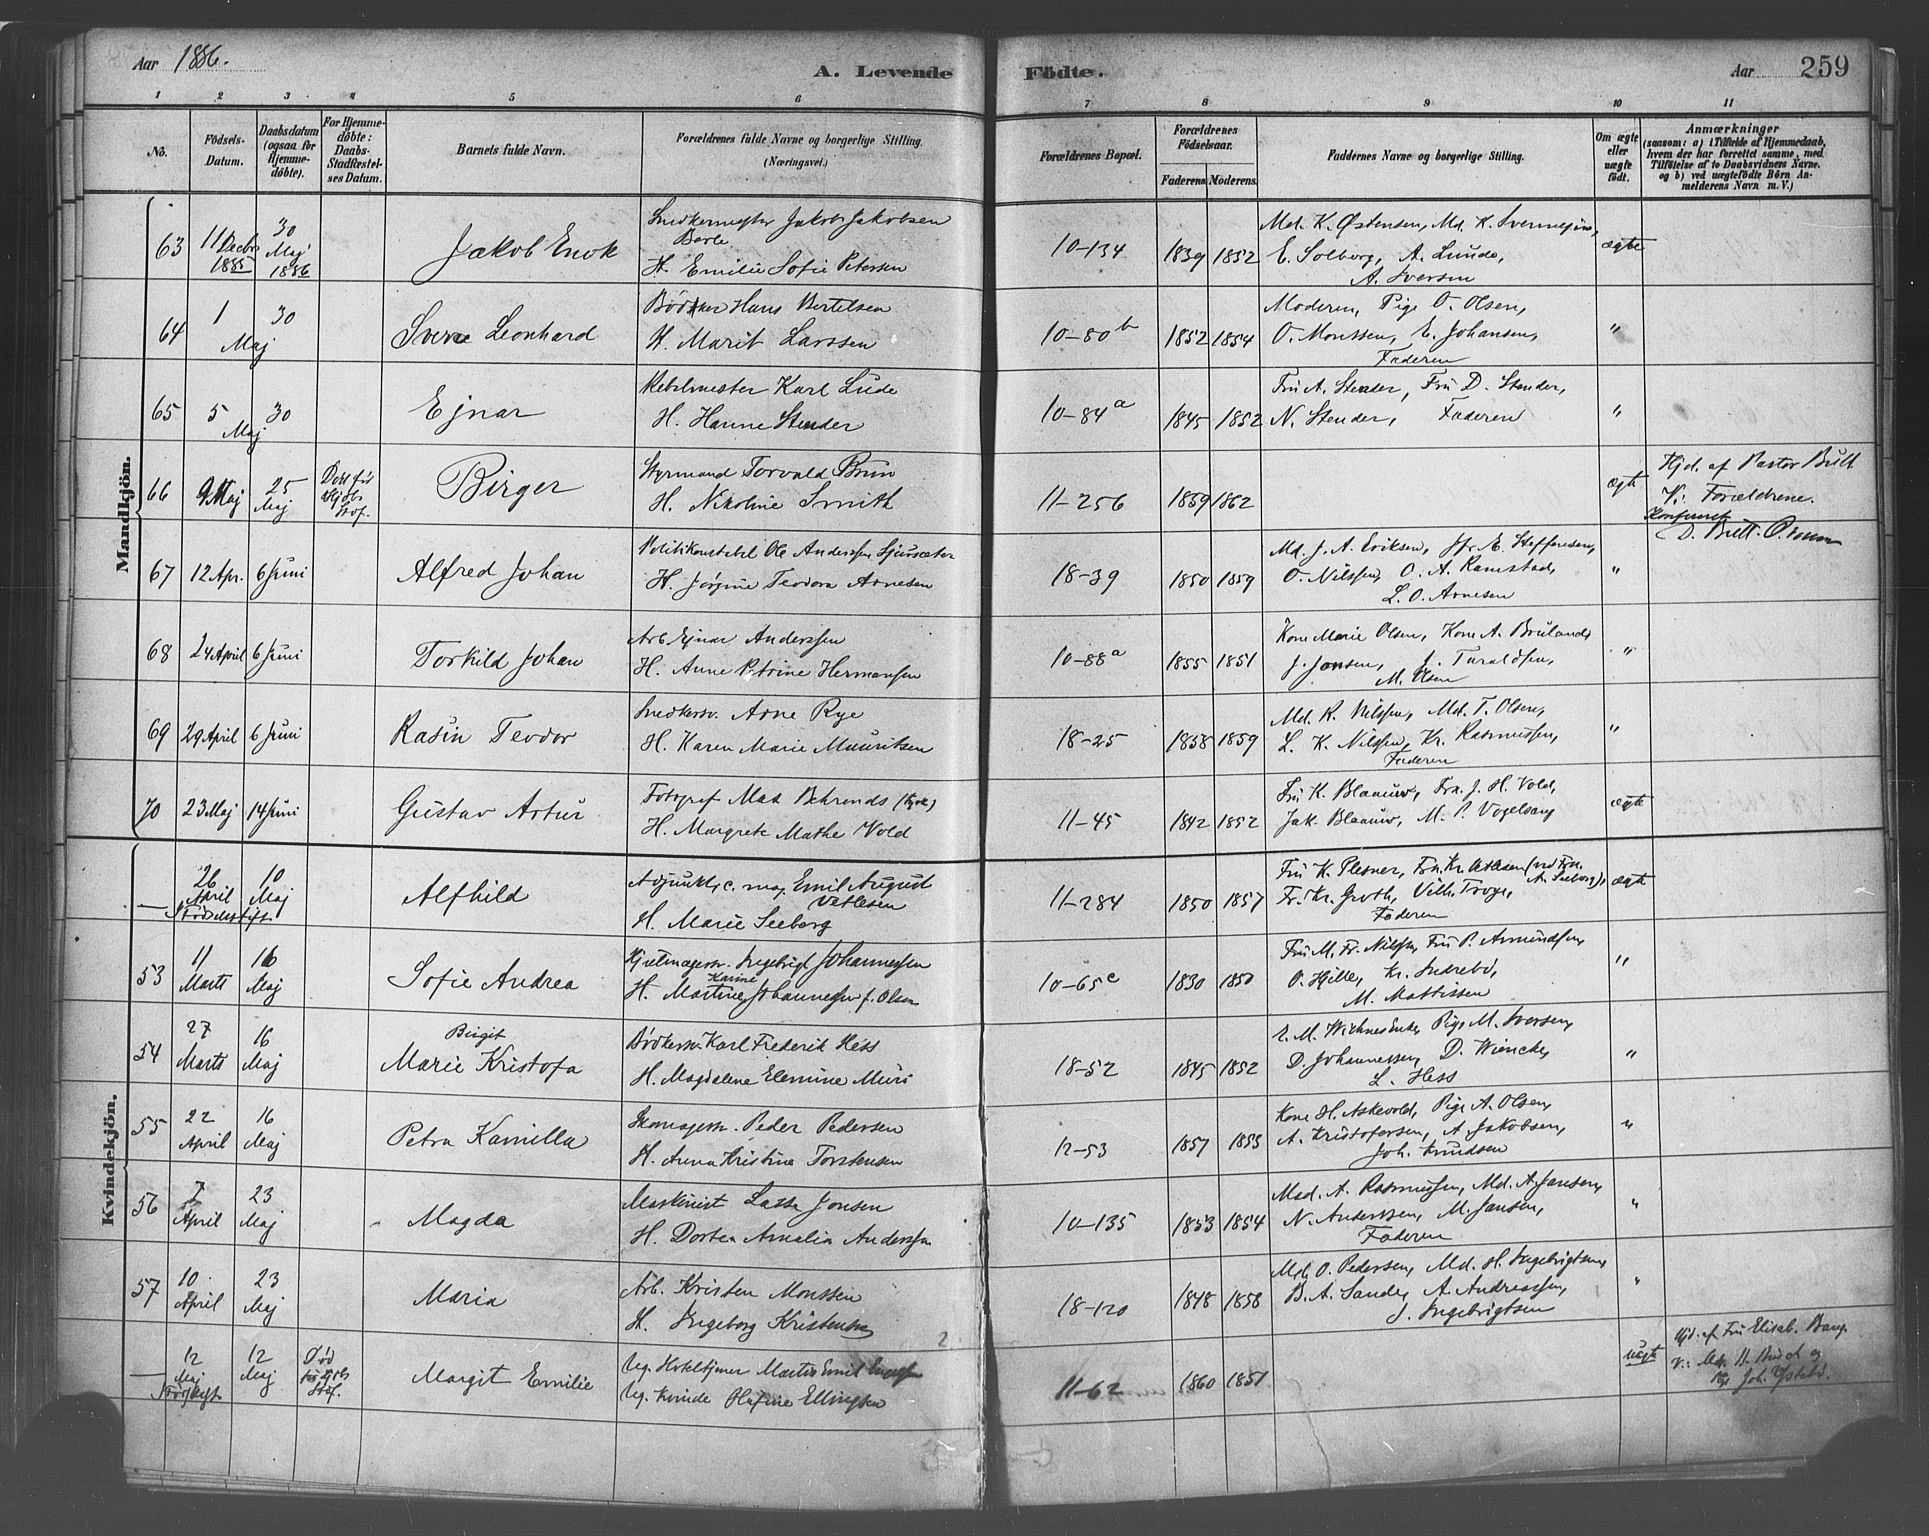 Aar 1886.
A. Levende Födte.
Aar 259
1 2 3 4 5 6 7 8 9 10 11
No.
Födsels-Datum.
Daabsdatum (ogsaa for Hjemme-döbte).
For Hjemme-döbte: Daabs-Stadfæstel-ses Datum.
Barnets fulde Navn.
Forældrenes fulde Navne og borgerlige Stilling. (Næringsvei.)
Forældrenes Bopæl.
Forældrenes Födselsaar.
Faderens. Moderens.
Faddernes Navne og borgerlige Stilling.
Om ægte eller uægte födt.
Anmærkninger
(saasom: a) i Tilfælde af Hjemmedaab, hvem der har forrettet samme, med Tilföielse af to Daabsvidners Navne. og b) ved uægtefödte Börn An-melderens Navn m. V.)
Mandkjön.
63 11 Decbr 1885 30 Maj 1886 Jakob Enok Snedkermester Jakob Jakobsen
H. Emilie Sofie Petersen 10-134 1839 1852 Md. K. Østensen, Md. K.
E. Solberg, A. Lunde,
A. Iversen ægte
64 1 Maj 30 Sverre Leonhard Bødker Hans Bertelsen
H. Marit Larssen 10-80 b 1852 1854 Moderen, Pige O. Olsen,
O. Monssen, E. Johansen,
Faderen "
65 5 Maj 30 Ejnar Rebslmester Karl Lude
H. Hanne Stender 10-84 a 1845 1852 Fru A. Stender, Fru D. Stender,
N. Stender, Faderen "
66 9 Maj 25 Maj Død før Stof. Birger Styrmand Torvald Brun
H. Nikoline Smith 11-256 1859 1862 ægte Hjd. af Pastor Bull
V: Forældrene.
Konfereret
D. Bull.
67 12 Apr. 6 Juni Alfred Johan Politikonstabel Ole Anderssen Sjursæter
H. Jørgine Teodora Arnesen 18-39 1850 1859 Md. J. A. Eriksen, Jfr E. Steffensen,
O. Nilssen, O. A. Ramstad,
L. O. Arnesen "
68 24 April 6 Juni Torkild Johan Arb Ejnar Anderssen
H. Anne Petrine Hermansen 10-88 a 1855 1851 Kone Marie Olsen, Kone A. Bruland,
J. Jansen, J. Taraldsen,
M. Olsen "
69 29 April 6 Juni Rasin Teodor Snedkersv. Arne Rye
H. Karen Marie Mauritsen 18-25 1858 1859 Md. R. Nilssen, Md. T. Olsen,
L. K. Nilssen, Kr. Rasmussen,
Faderen "
70 23 Maj 14 Juni Gustav Artur Fotograf Max Behrends
H. Margrete Mathe Vold 11-45 1842 1852 Fru K. Blaauw, Frk. J. H. Vold,
Jak. Blaauw, M. P. Vogelsang ægte
Kvindekjön.
— 26 April 10 Maj Fødselsstift Alfhild Adjunkt, c. mag Emil August Vatlesen
H. Marie Seeberg 11-284 1850 1857 Fru K. Plesner, (ved Frk. A. Seeberg),
Fr. Kr. Groth, Vilh. Troye,
Faderen ægte
53 11 Marts 16 Maj Sofie Andrea Hjulmagersv. Ingebrigt Johannessen
H. Martine Karine Johannessen f. Olsen 10-65 c 1830 1850 Fru M. Fr. Nilssen, Fru P. Amundsen,
O. Hjelle, Kr. Indrebø,
M. Mattissen "
54 27 Marts 16 Maj Birgit
Marie Kristofa Bødkersv. Karl Frederik Hess
H. Magdalene Elemine Muri 18-52 1845 1852 E. M. Wichnes Enke, Pige M. Iversen,
D. Johannessen, D. Wiencke,
L. Hess "
55 22 April 16 Maj Petra Kamilla Skomagersv. Peder Pedersen
H. Anna Kristine Torstensen 12-53 1857 1855 Kone H. Askevold, Pige A. Olsen,
A. Kristofersen, A. Jakobsen,
Joh. Knudsen "
56 7 April 23 Maj Magda Maskinist Lasse Jonsen
H. Dortea Amalia Anderssen 10-135 1853 1854 Mad. A. Rasmussen, Md. A. Jansen,
N. Anderssen, M. Jansen,
Faderen "
57 10 April 23 Maj Maria Arb. Kristen Monssen
H. Ingeborg Kristensen 18-120 1848 1858 Md. O. Pedersen, Md. H. Ingebrigtsen,
B. A. Sande, A. Andreassen,
J. Ingebrigtsen "
— 12 Maj 12 Maj Fødselsst Død Stof. Margit Emilie Ug. Hoteltjener Martin Emil
Ug. Kvinde Olefine Ellingsen 11-62 1860 1851 uægte Hjd. af Fru Elisab. Bang.
V: B. Bull og
Joh. Ystebø.